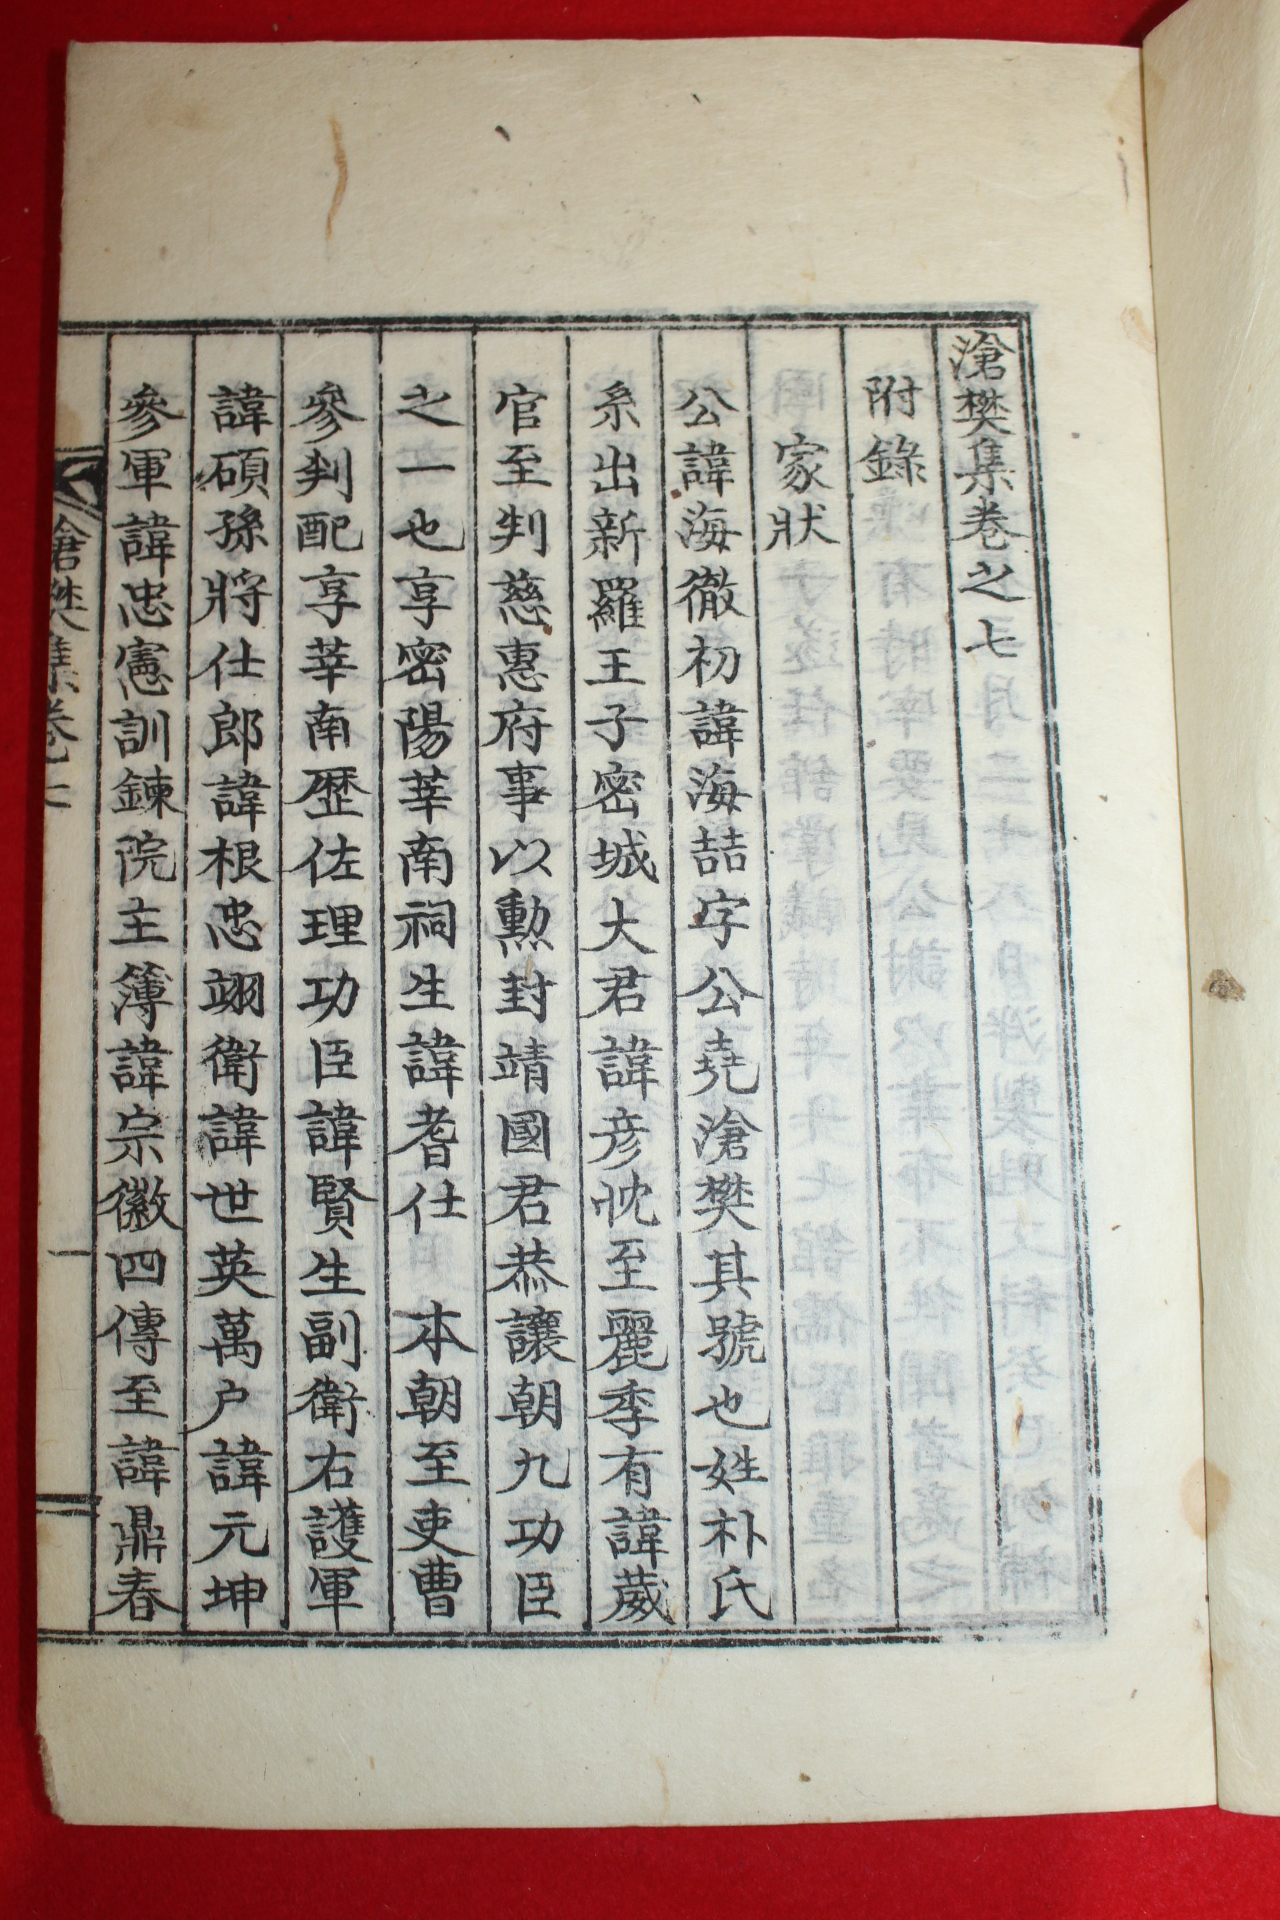 滄樊集卷之七
附錄
家狀
公諱海徹初諱海喆字公堯滄樊其號也姓朴氏
系出新羅王子密城大君諱彦忱至麗季有諱葳
官至判慈惠府事以勲封靖國君恭讓朝九功臣
之一也享密陽莘南祠生諱耆仕 本朝至吏曹
參判配享莘南歷佐理功臣諱賢生副衛右護軍
諱碩孫將仕郎諱根忠翊衛諱世英萬户諱元坤
參軍諱忠憲訓鍊院主簿諱宗徽四傳至諱鼎春
滄樊集卷七 一